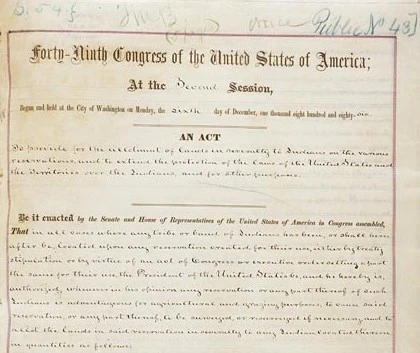 Public No 43
Forty-Ninth Congress of the United States of America;
At the Second Session,
Begun and held at the City of Washington on Monday, the sixth day of December, one thousand eight hundred and eighty-six
AN ACT
To provide for the allotment of lands in severalty to Indians on the various
reservations, and to extend the protection of the laws of the United States and
the Territories over the Indians, and for other purposes.
Be it enacted by the Senate and House of Representatives of the United States of America in Congress assembled,
That in all cases where any tribe or band of Indians has been, or shall here-
after be, located upon any reservation created for their use, either by treaty
stipulation or by virtue of an act of Congress or executive order setting apart
the same for their use, the President of the United States be, and he hereby is,
authorized, whenever in his opinion any reservation or any part thereof of such
Indians is advantageous for agricultural and grazing purposes, to cause said
reservation, or any part thereof, to be surveyed, or resurveyed if necessary, and to
allot the lands in said reservation in severalty to any Indian located thereon
in quantities as follows: